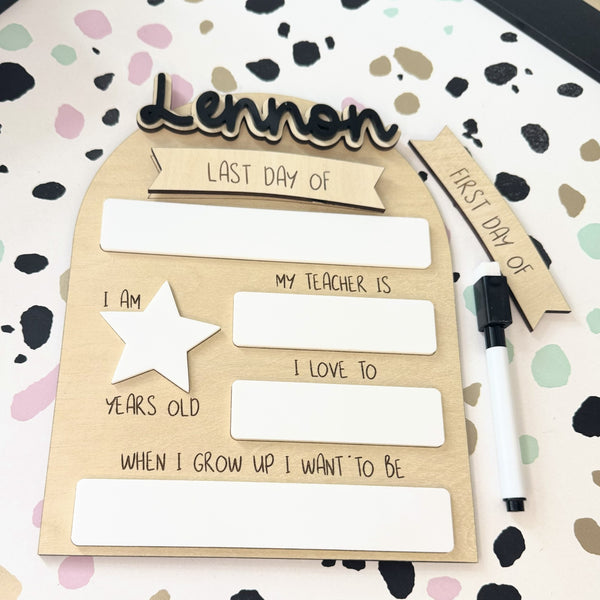 Lennon
LAST DAY OF
FIRST DAY OF
MY TEACHER IS
I AM
I LOVE TO
YEARS OLD
WHEN I GROW UP I WANT TO BE